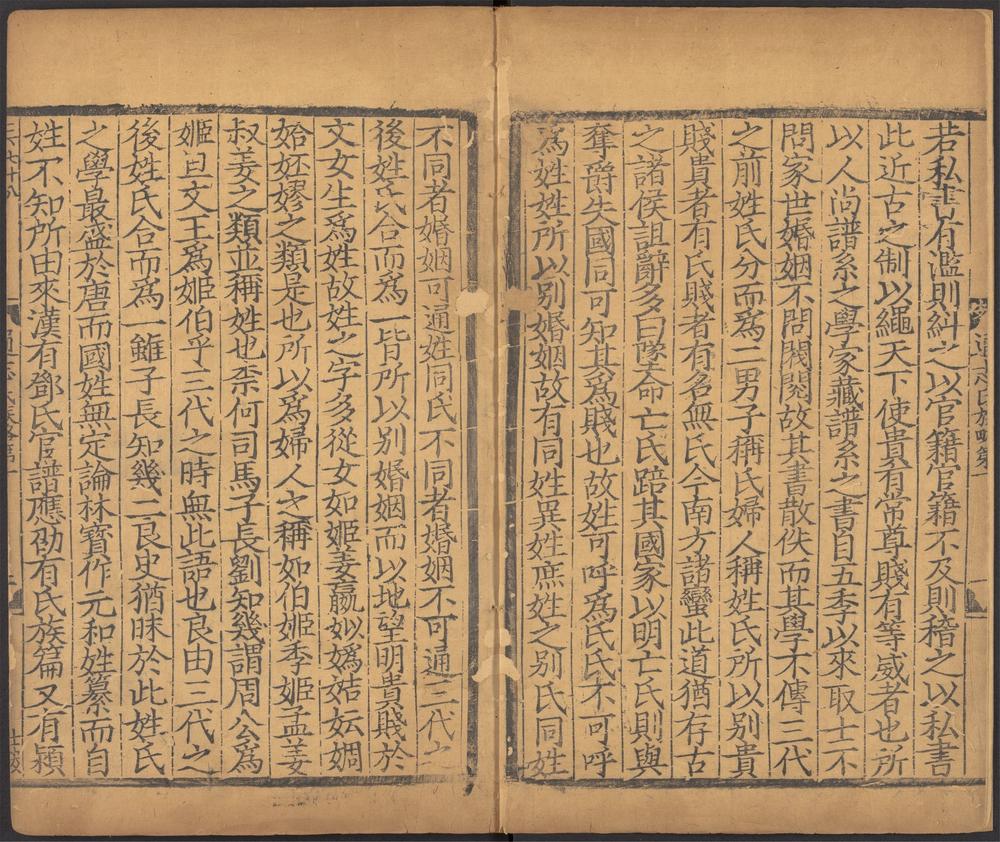 若私書有濫則糾之以官籍官籍不及則稽之以私書
此近古之制以繩天下使貴有常尊賤有等威者也所
以人尚譜系之學家藏譜系之書自五季以來取士不
問家世婚姻不問閥閱故其書散佚而其學不傳三代
之前姓氏分而爲二男子稱氏婦人稱姓氏所以别貴
賤貴者有氏賤者有名無氏今南方諸蠻此道猶存古
之諸侯詛辭多曰墜命亡氏踣其國家以明亡氏則與
奪爵失國同可知其爲賤也故姓可呼爲氏氏不可呼
爲姓姓所以别婚姻故有同姓異姓庶姓之别氏同姓
不同者婚姻可通姓同氏不同者婚姻不可通三代之
後姓氏合而爲一皆所以别婚姻而以地望明貴賤於
文女生爲姓故姓之字多從女如姬姜嬴姒嬀姞妘婤
姶妚嫪之類是也所以爲婦人之稱如伯姬季姬孟姜
叔姜之類並稱姓也柰何司馬子長劉知幾謂周公爲
姬旦文王爲姬伯乎三代之時無此語也良由三代之
後姓氏合而爲一雖子長知幾二良史猶昧於此姓氏
之學最盛於唐而國姓無定論林寶作元和姓纂而自
姓不知所由來漢有鄧氏官譜應劭有氏族篇又有潁